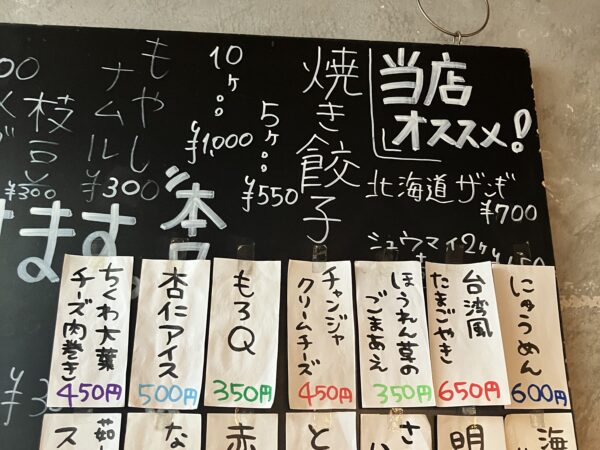 当店
オススメ!
北海道ザンギ
¥700
シュウマイ2ケ
焼き餃子
5ヶ
¥550
10ヶ
¥1,000
もやし
ナムル
¥300
枝豆
¥300
ます。
にゅうめん
600円
台湾風
たまごやき
650円
ほうれん草の
ごまあえ
350円
チャンジャ
クリームチーズ
450円
もろQ
350円
杏仁アイス
500円
ちくわ大葉
チーズ肉巻き
450円
海
明
さ
と
赤
な
茹
ス